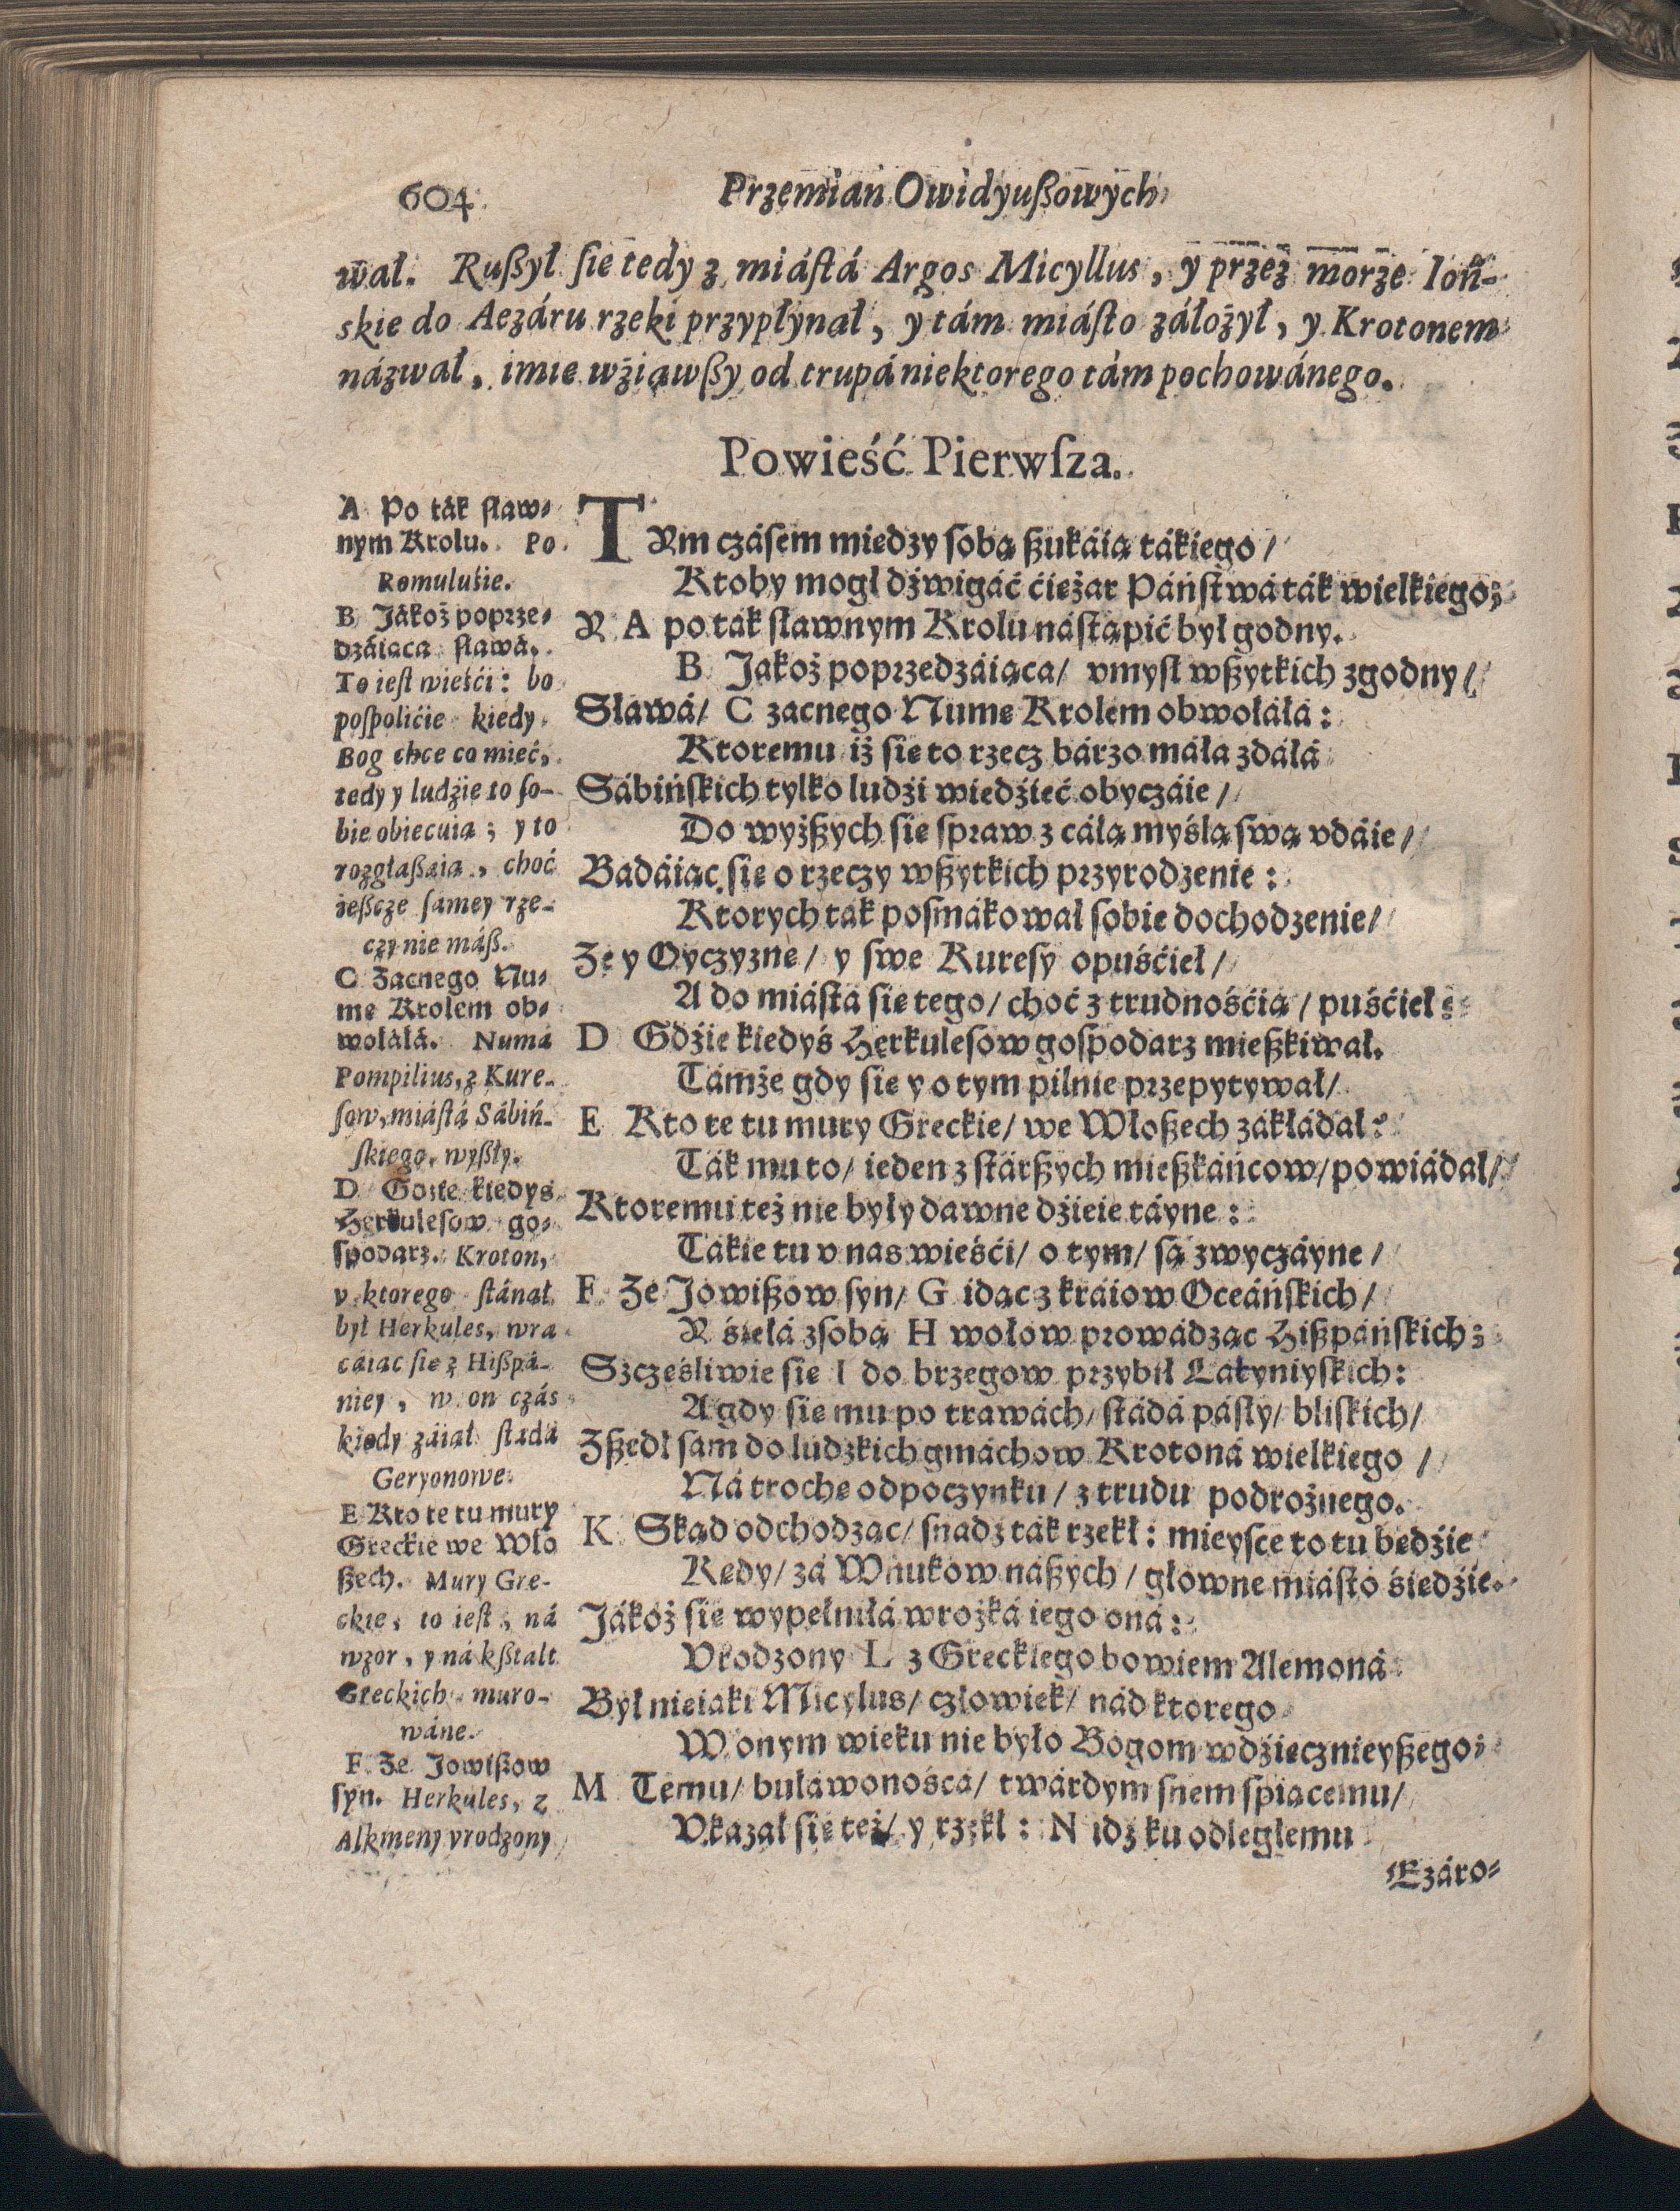 604
Przemian Owidyußowych
wał. Rußył ſie tedy z miáſtá Argos Micyllus, y przez morze Ioń-
skie do Aezáru rzeki przypłynał, y tám miáſto záłożył, y Krotonem
názwał, imie wźiąwßy od trupá niektorego tám pochowánego.
Powieść Pierwſza.
A Po ták sław-
nym Krolu. Po
Romuluśie.
B Jákoż poprze-
dzáiąca sławá.
To ieſt wieśći: bo
poſpolićie kiedy
Bog chce co mieć,
tedy y ludźie to ſo-
bie obiecuia; y to
rozgłaßáia, choć
ießcze ſamey rze-
czy nie máß.
C Zacnego Nu-
me Krolem ob-
wołáłá. Numá
Pompilius, z Kure-
ſow, miáſtá Sábiń-
ſkiego, wyßły.
D Gdźie kiedyś
Herkulesow go-
spodarz. Kroton,
v ktorego ſtánał
był Herkules, wra
cáiac ſie z Hißpá-
niey, w on czás
kiedy záiał ſtádá
Geryonowe.
E Kto te tu mury
Greckie we Wło
ßech. Mury Gre-
ckie, to ieſt, ná
wzor, y ná kßtalt
Greckich muro-
wáne.
F Że Jowißow
syn. Herkules, z
Alkmeny vrodzony
TYm czásem miedzy sobą ßukáią tákiego /
Ktoby mogł dźwigáć ćieżar Páństwá ták wielkiego;
Y A po ták sławnym Krolu nástąpić był godny.
B Jákoż poprzedzáiąca / vmysł wßytkich zgodny /
Sławá / C zacnego Nume Krolem obwołáłá:
Ktoremu iż sie to rzecz bárzo máła zdáłá
Sábińskich tylko ludźi wiedźieć obyczáie /
Do wyżßych sie spraw z cáłą myślą swą vdáie /
Badáiąc sie o rzeczy wßytkich przyrodzenie:
Ktorych ták posmákował sobie dochodzenie /
Że y Oyczyzne / y swe Kuresy opuśćieł /
A do miástá sie tego / choć z trudnośćią / puśćieł:
D Gdźie kiedyś Herkulesow gospodarz mießkiwał.
Támże gdy sie y o tym pilnie przepytywał /
E Kto te tu mury Greckie / we Włoßech zákłádał:
Ták mu to / ieden z stárßych mießkáńcow / powiádał /
Ktoremu też nie były dawne dźieie táyne:
Tákie tu v nas wieśći / o tym / są zwyczáyne /
F Że Jowißow syn / G idąc z kráiow Oceáńskich /
Y śiełá z sobą H wołow prowádząc Hißpáńskich;
Szcześliwie sie I do brzegow przybił Látyniyskich:
A gdy sie mu po trawách / stádá pásły / bliskich /
Zßedł sam do ludzkich gmáchow Krotoná wielkiego /
Ná troche odpoczynku / z trudu podrożnego.
K Skąd odchodząc / snadz ták rzekł: mieysce to tu bedźie
Kędy / zá Wnukow náßych / głowne miásto śiedźie.
Jákóż sie wypełniłá wrożká iego oná:
Vrodzony L z Greckiego bowiem Alemoná
Był nieiáki Micylus / człowiek / nád ktorego
W onym wieku nie było Bogom wdźiecznieyßego;
M Temu / buławonośca / twárdym snem spiącemu /
Vkazał sie też / y rzekł: N idz ku odległemu
Ezáro-